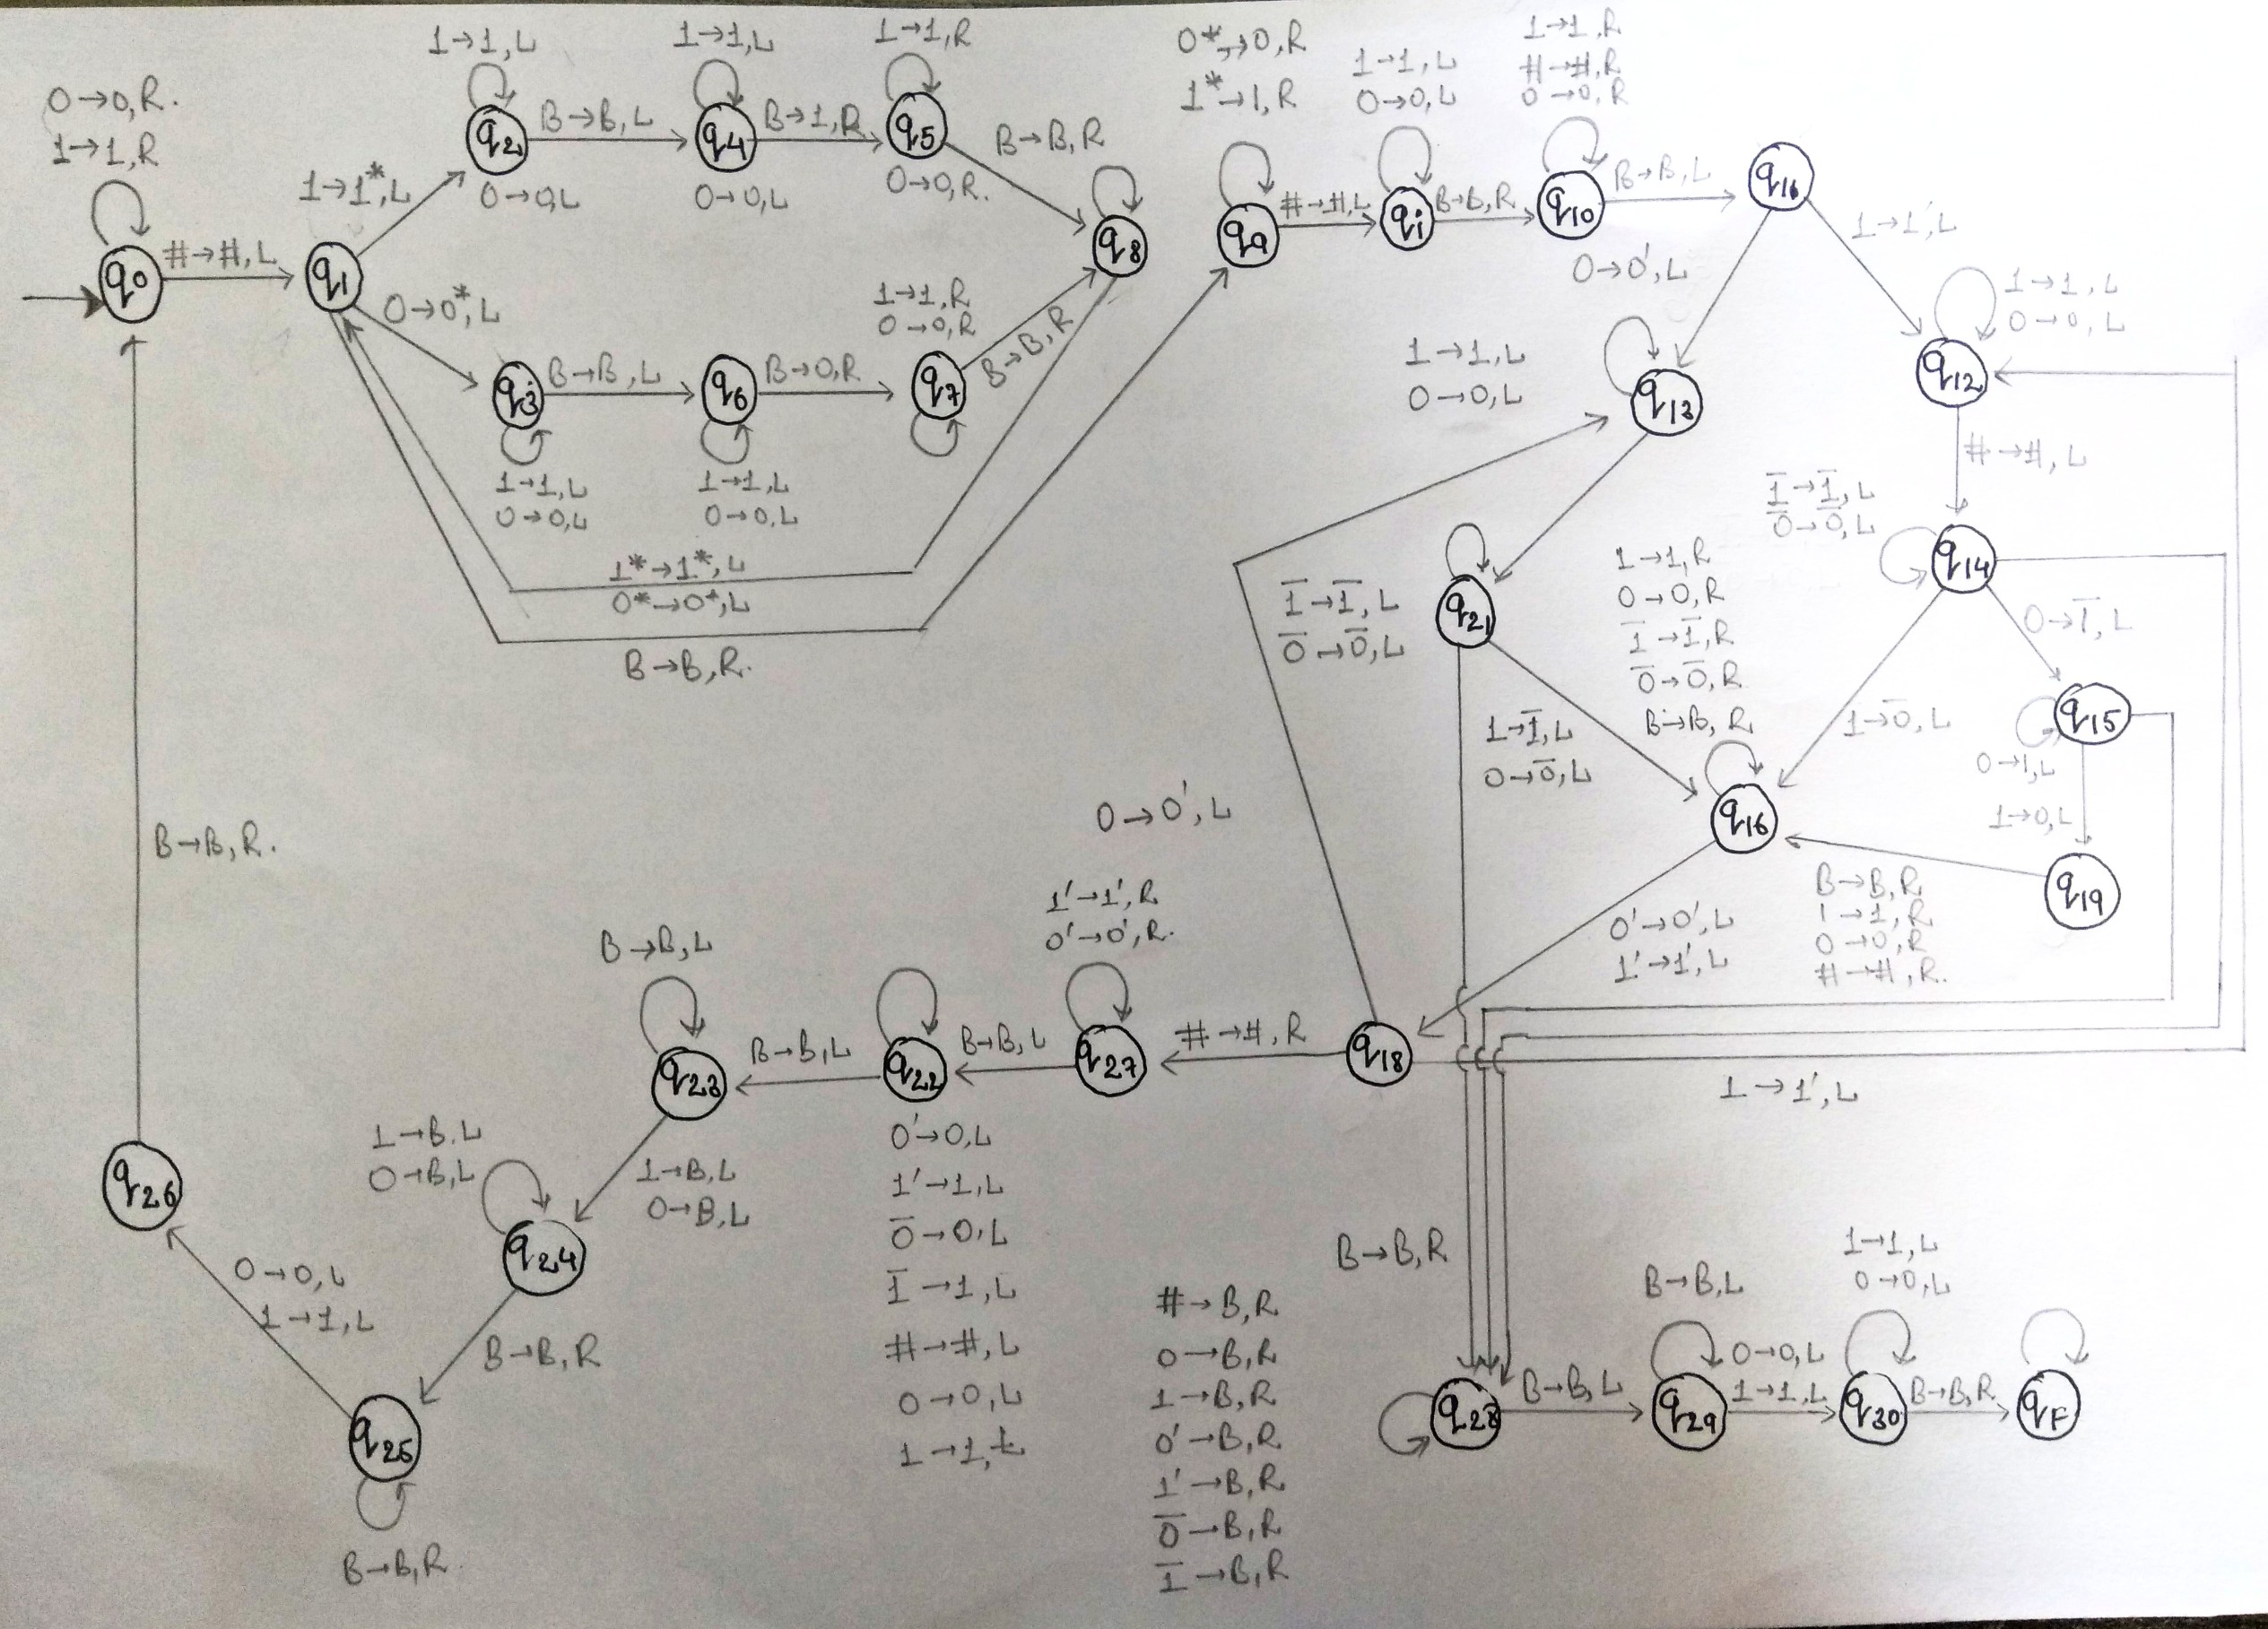 0→0,R.
1→1,R
q0
#→#,L
q1
1→1*,L
0→0*,L
1→1,L
q2
0→0,L
B→B,L
1→1,L
q4
0→0,L
B→1,R
1→1,R
q5
0→0,R.
B→B,R
q8
q3
1→1,L
0→0,L
B→B,L
q6
1→1,L
0→0,L
B→0,R
1→1,R
0→0,R
q7
B→B,R
1*→1*,L
0*→0*,L
B→B,R.
0*→0,R
1*→1,R
q9
#→#,L
1→1,L
0→0,L
qi
B→B,R
1→1,R
#→#,R
0→0,R
q10
B→B,L
q16
0→0',L
1→1',L
1→1,L
0→0,L
q13
1→1,L
0→0,L
q12
#→#,L
1̄→1̄,L
0̄→0̄,L
q14
0→1̄,L
1→0̄,L
q15
0→1,L
1→0,L
q19
B→B,R
1→1,R
0→0,R
#→#,R.
1̄→1̄,L
0̄→0̄,L
q21
1→1̄,L
0→0̄,L
1→1,R
0→0,R
1̄→1̄,R
0̄→0̄,R
B→B,R
q16
0'→0',L
1'→1',L
q18
0→0',L
1→1',L
#→#,R
1'→1',R
0'→0',R.
q27
B→B,L
q22
0'→0,L
1'→1,L
0̄→0,L
1̄→1,L
#→#,L
0→0,L
1→1,L
B→B,L
B→B,L
q23
1→B,L
0→B,L
1→B,L
0→B,L
q24
B→B,R
q25
B→B,R.
0→0,L
1→1,L
q26
B→B,R.
B→B,R
#→B,R
0→B,R
1→B,R
0'→B,R
1'→B,R
0̄→B,R
1̄→B,R
q28
B→B,L
B→B,L
q29
0→0,L
1→1,L
1→1,L
0→0,L
q30
B→B,R
qF